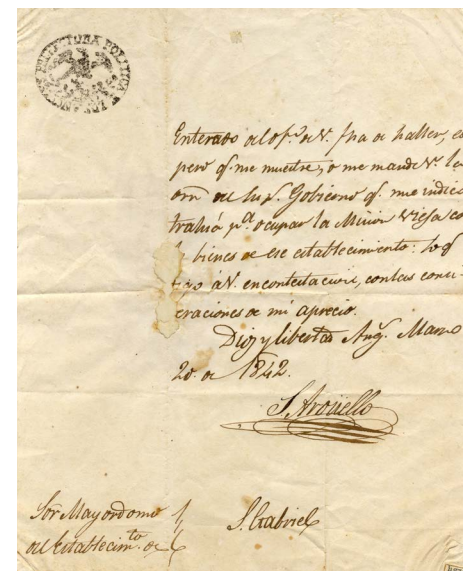 PREFECTURA POLITICA Y
Enterado del of.º de V. fha de haller, es
pero q.e me muestre, o me mande V. la
orn del Sup. Gobierno q. me indica
trahiá p.ª ocupar la Mision Viefa co
los bienes de ese establecimiento: lo q
digo á V. en contestacion, con las consi
deraciones de mi aprecio.
Dios y libertad Ang.s Marzo
20. de 1842.
S. Arguello
Sor Mayordomo
del establecim.to de
S. Gabriel